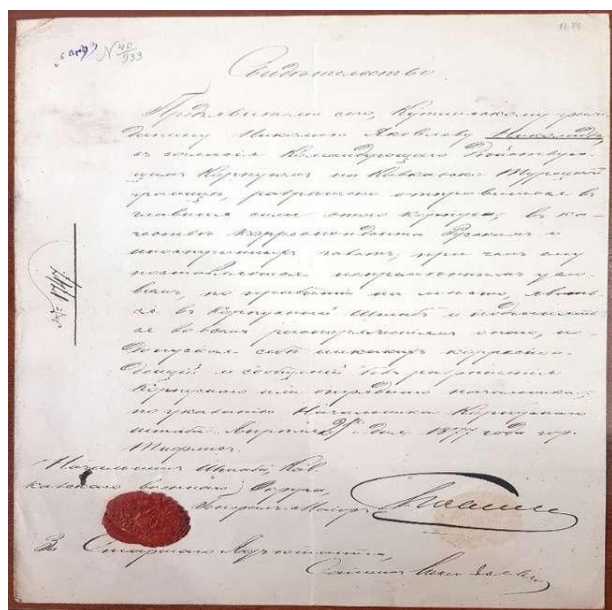 № 40/933
Свидѣтельство.
Предъявителю сего, Кутаисскому граж-
данину Николаю Яковлеву Николадзе
съ согласія Командующаго Дѣйствую-
щимъ Корпусомъ на Кавказско-Турецкой
границѣ, разрѣшено отправиться въ
главныя силы этого Корпуса, въ ка-
чествѣ корреспондента Русскихъ и
иностранныхъ газетъ, при чемъ ему
поставляется непремѣннымъ усло-
віемъ, по прибытіи на мѣсто, явить-
ся въ Корпусный Штабъ и подчинять-
ся во всемъ распоряженіямъ онаго, не
допуская себѣ никакихъ корреспон-
денцій и сообщеній безъ разрѣшенія
Корпуснаго или отряднаго начальника,
по указанію Начальника Корпуснаго
штаба. Апрѣля дня 1877 года гор.
Тифлисъ.
Начальникъ Штаба Кав-
казскаго военнаго Округа,
Генералъ-Маіоръ
За Старшаго Адъютанта,